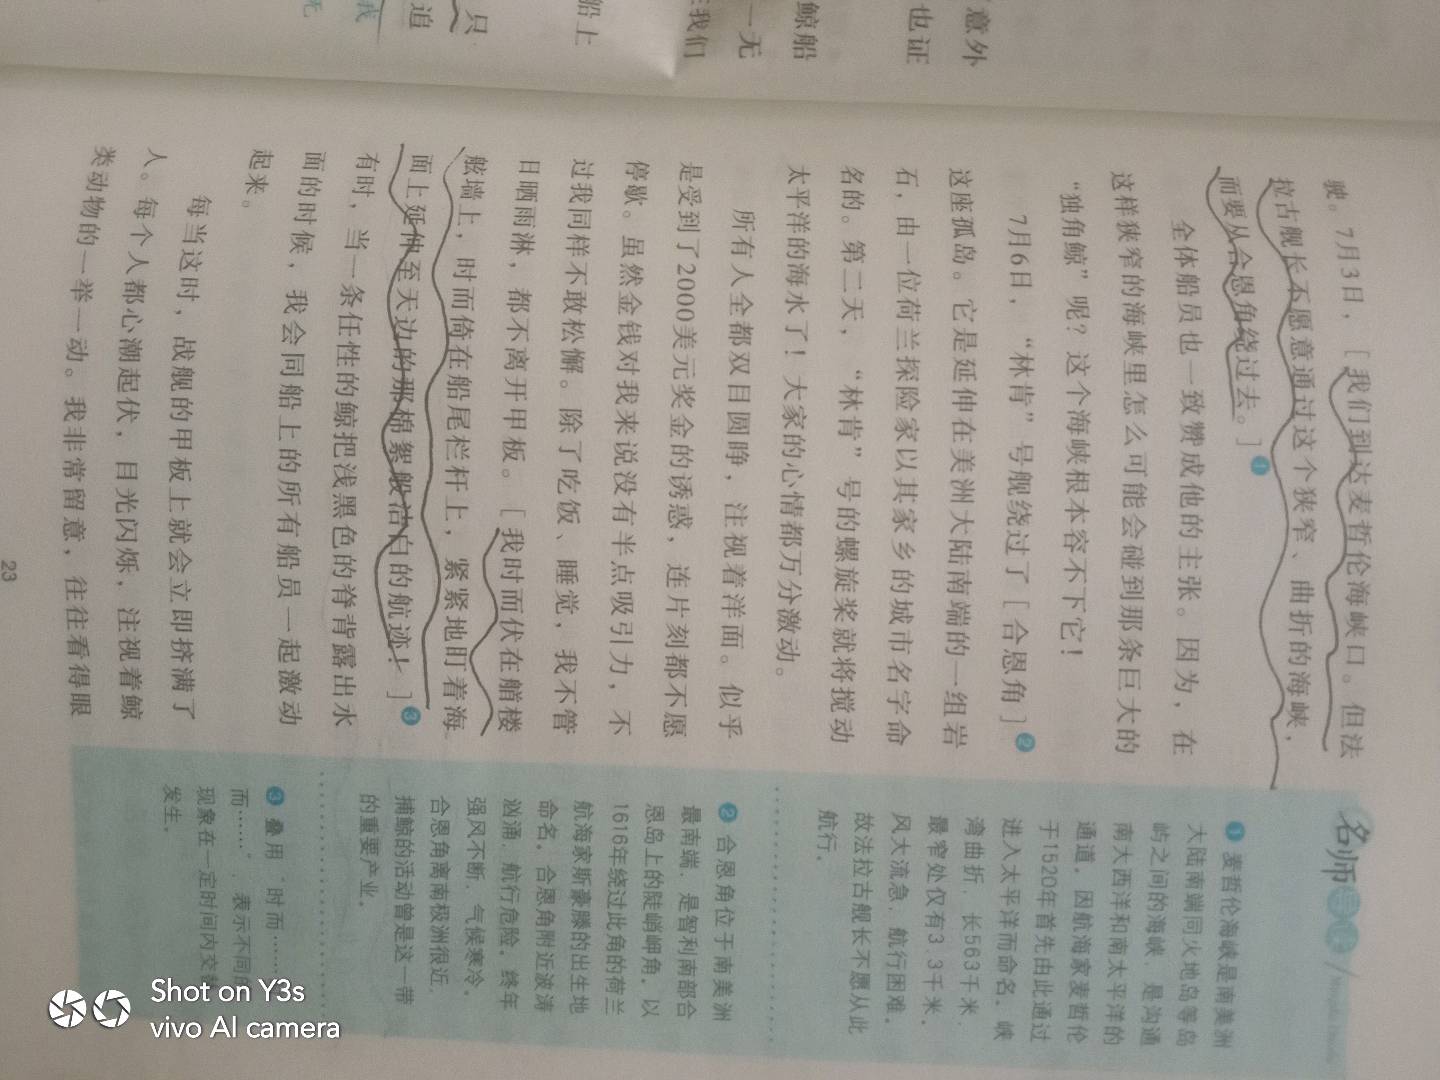 意外
也证
鲸船
一无
我们
船上
只
追
我
无
驶。7月3日，［我们到达麦哲伦海峡口。但法
拉古舰长不愿意通过这个狭窄、曲折的海峡，
而要从合恩角绕过去。］❶
全体船员也一致赞成他的主张。因为，在
这样狭窄的海峡里怎么可能会碰到那条巨大的
“独角鲸”呢？这个海峡根本容不下它！
7月6日，“林肯”号舰绕过了［合恩角］❷
这座孤岛。它是延伸在美洲大陆南端的一组岩
石，由一位荷兰探险家以其家乡的城市名字命
名的。第二天，“林肯”号的螺旋桨就将搅动
太平洋的海水了！大家的心情都万分激动。
所有人全都双目圆睁，注视着洋面。似乎
是受到了2000美元奖金的诱惑，连片刻都不愿
停歇。虽然金钱对我来说没有半点吸引力，不
过我同样不敢松懈。除了吃饭、睡觉，我不管
日晒雨淋，都不离开甲板。［我时而伏在艏楼
舷墙上，时而倚在船尾栏杆上，紧紧地盯着海
面上延伸至天边的那棉絮般洁白的航迹！］❸
有时，当一条任性的鲸把浅黑色的脊背露出水
面的时候，我会同船上的所有船员一起激动
起来。
每当这时，战舰的甲板上就会立即挤满了
人。每个人都心潮起伏，目光闪烁，注视着鲸
类动物的一举一动。我非常留意，往往看得眼
23
名师
❶ 麦哲伦海峡是南美洲
大陆南端同火地岛等岛
屿之间的海峡，是沟通
南大西洋和南太平洋的
通道，因航海家麦哲伦
于1520年首先由此通过
进入太平洋而命名。峡
湾曲折，长563千米，
最窄处仅有3.3千米，
风大流急，航行困难，
故法拉古舰长不愿从此
航行。
❷ 合恩角位于南美洲
最南端，是智利南部合
恩岛上的陡峭岬角，以
1616年绕过此角的荷兰
航海家斯豪滕的出生地
命名。合恩角附近波涛
汹涌，航行危险，终年
强风不断，气候寒冷。
合恩角离南极洲很近，
捕鲸的活动曾是这一带
的重要产业。
❸ 叠用“时而……时
而……”，表示不同的
现象在一定时间内交替
发生。
Shot on Y3s
vivo AI camera